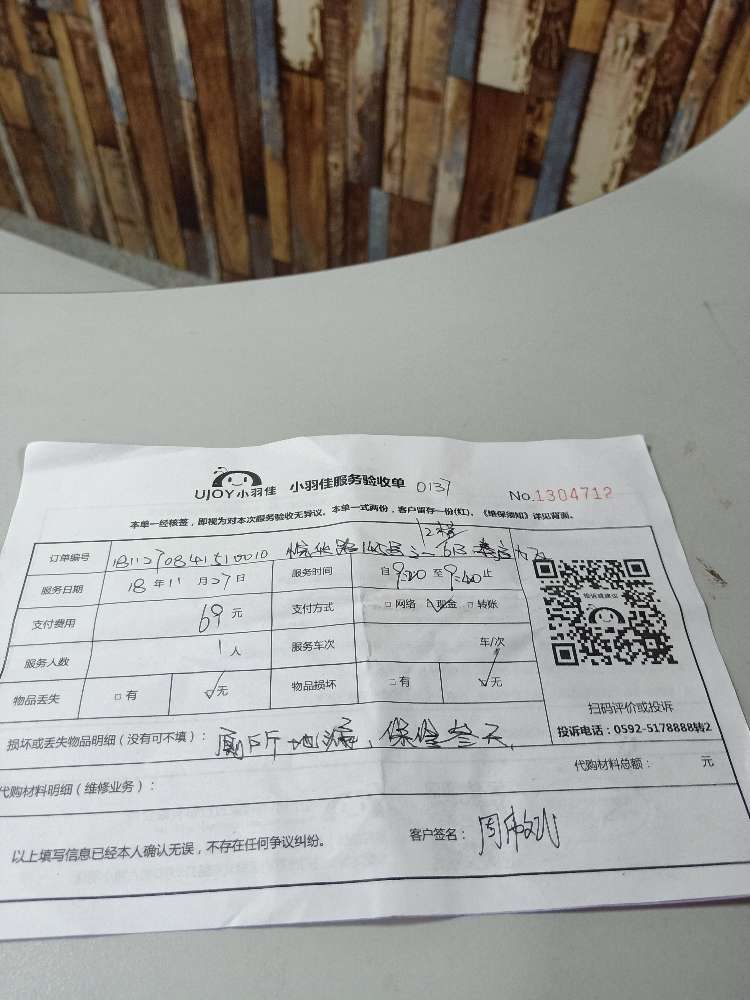 UJOY小羽佳 小羽佳服务验收单 0137 No.1304712
本单一经核签，即视为对本次服务验收无异议。本单一式两份，客户留存一份(红)。《维保须知》详见背面。
订单编号
服务日期 18年11月27日 服务时间 自9:20至9:40止
支付费用 69元 支付方式 □网络 ☑现金 □转账
服务人数 1人 服务车次 车/次
物品丢失 □有 ☑无 物品损坏 □有 ☑无
投诉或建议
扫码评价或投诉
投诉电话：0592-5178888转2
损坏或丢失物品明细（没有可不填）：厕所地漏，保修叁天
代购材料明细（维修业务）： 代购材料总额： 元
以上填写信息已经本人确认无误，不存在任何争议纠纷。 客户签名：